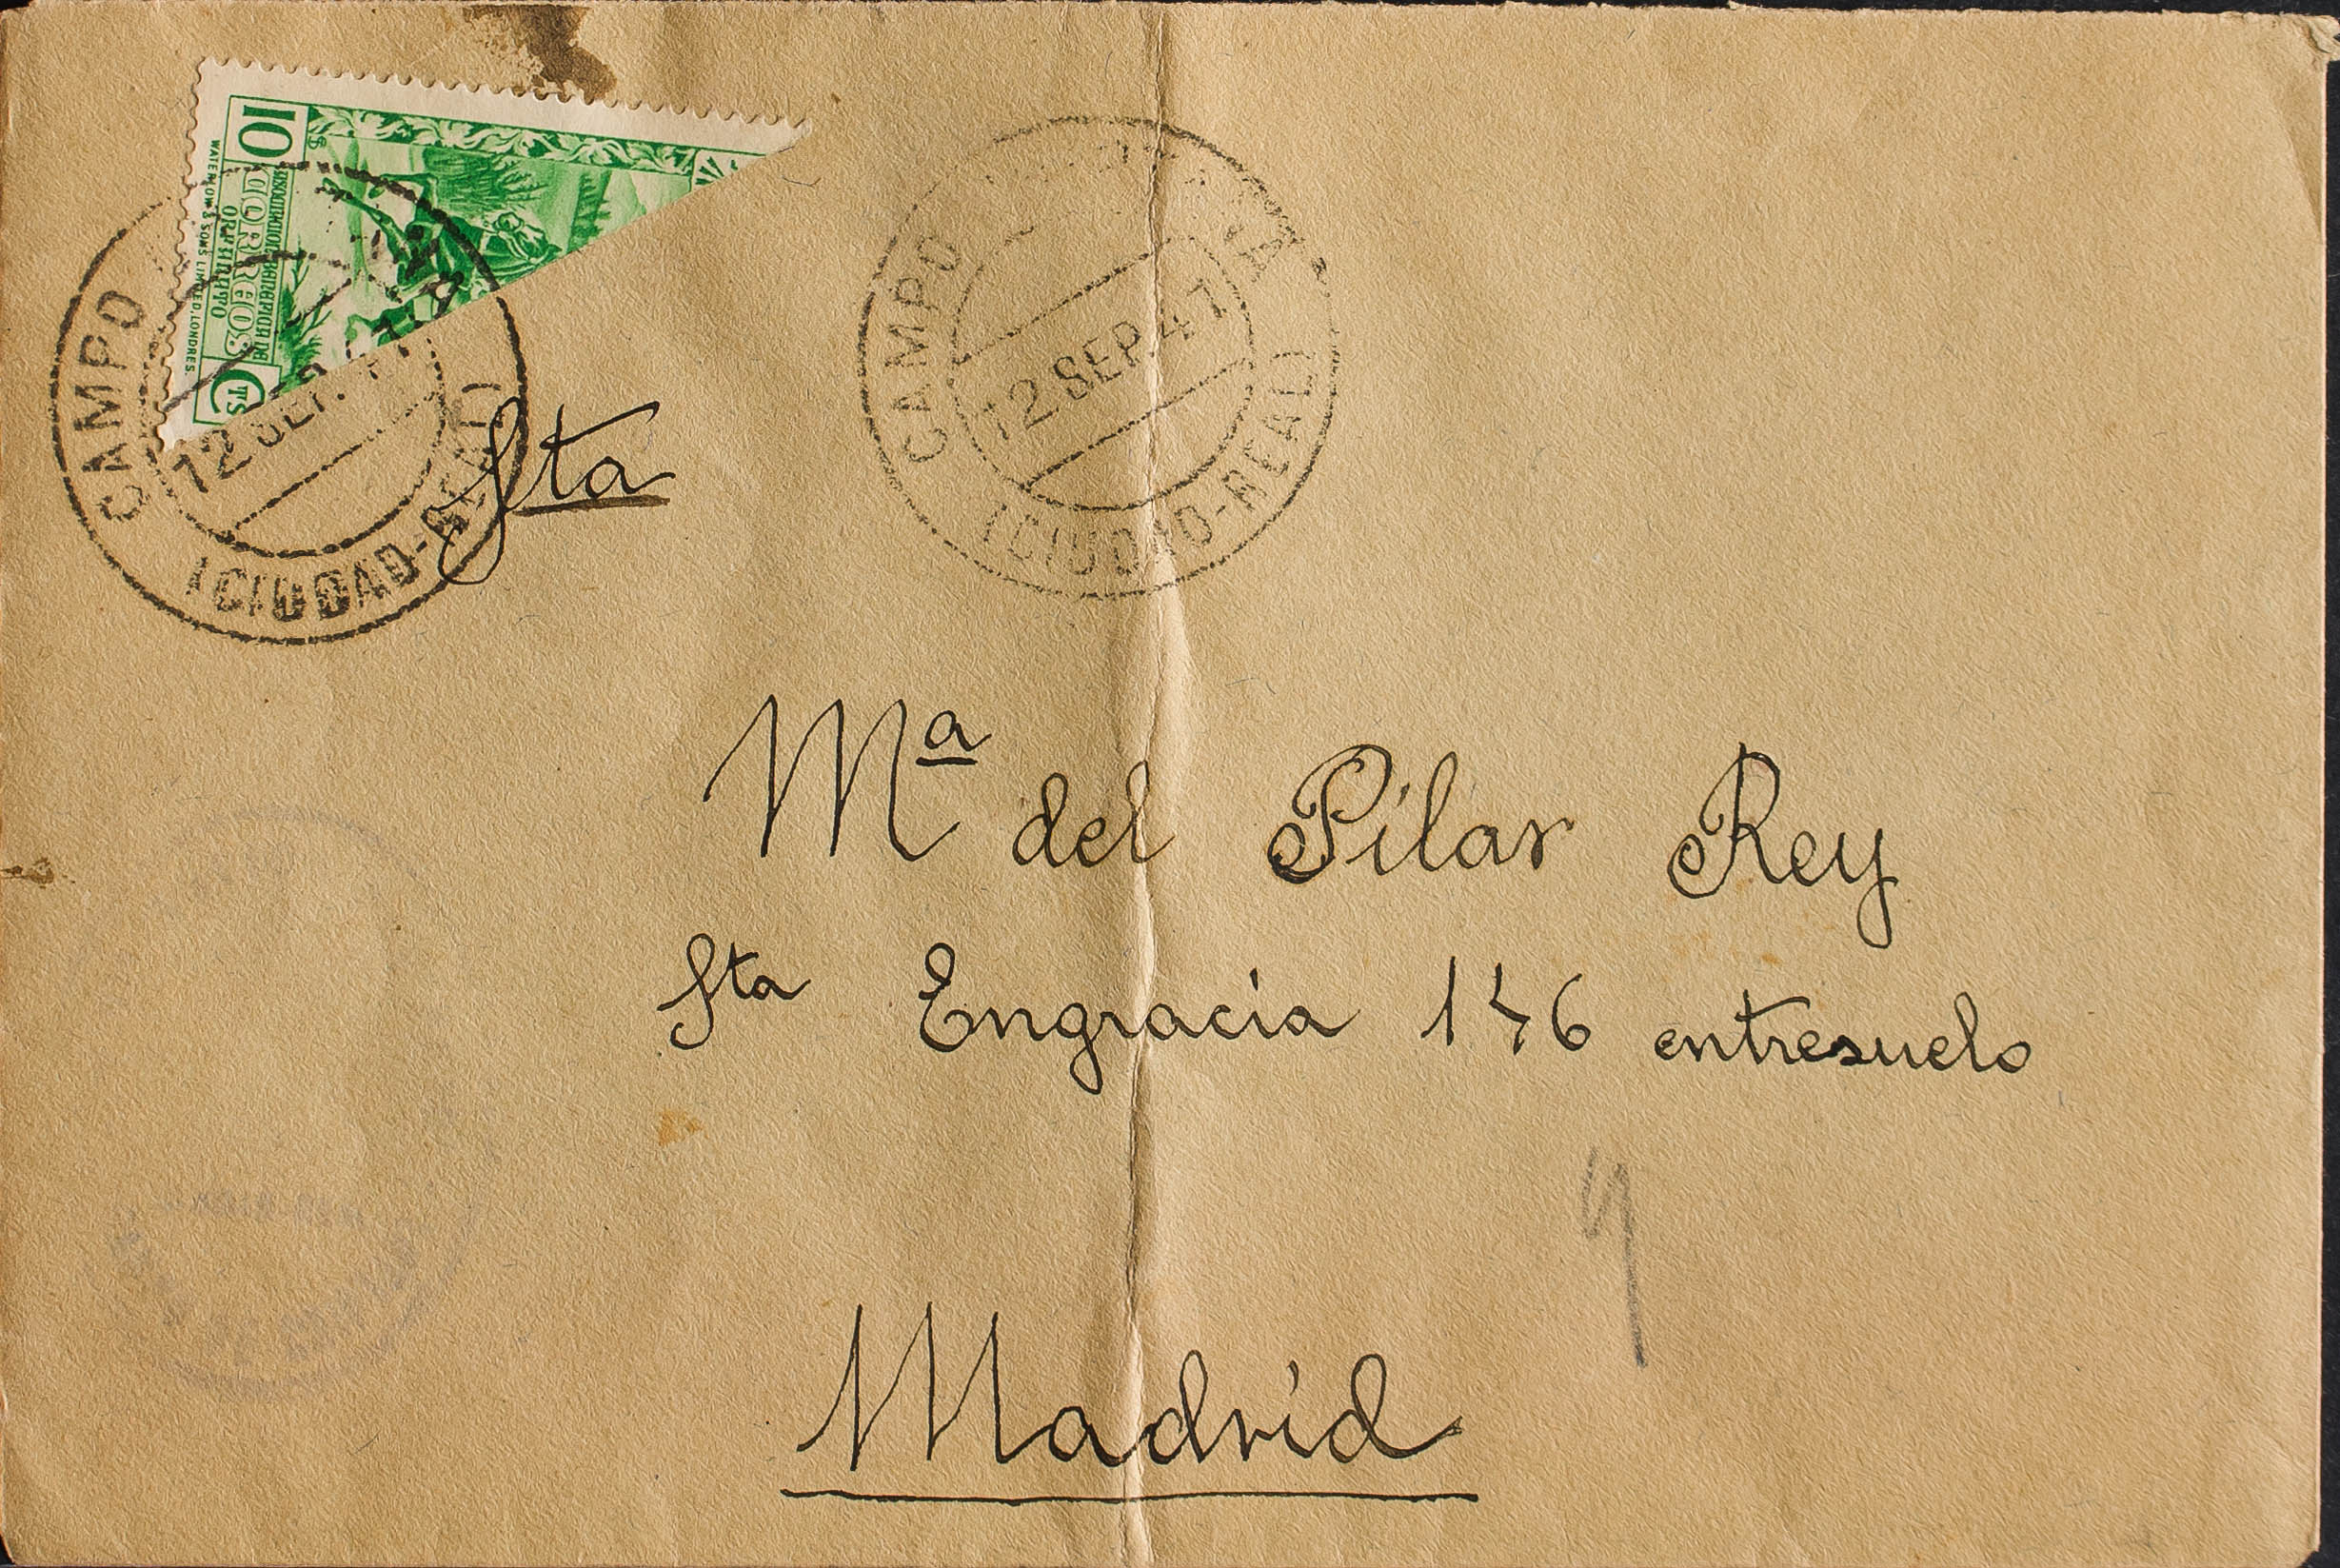 10 Cts
CORREOS
WATERLOW & SONS LIMITED, LONDRES.
CAMPO
12 SEP. 41
(CIUDAD-REAL)
CAMPO
12 SEP. 41
(CIUDAD-REAL)
Sta
Mª del Pilar Rey
Sta Engracia 146 entresuelo
Madrid